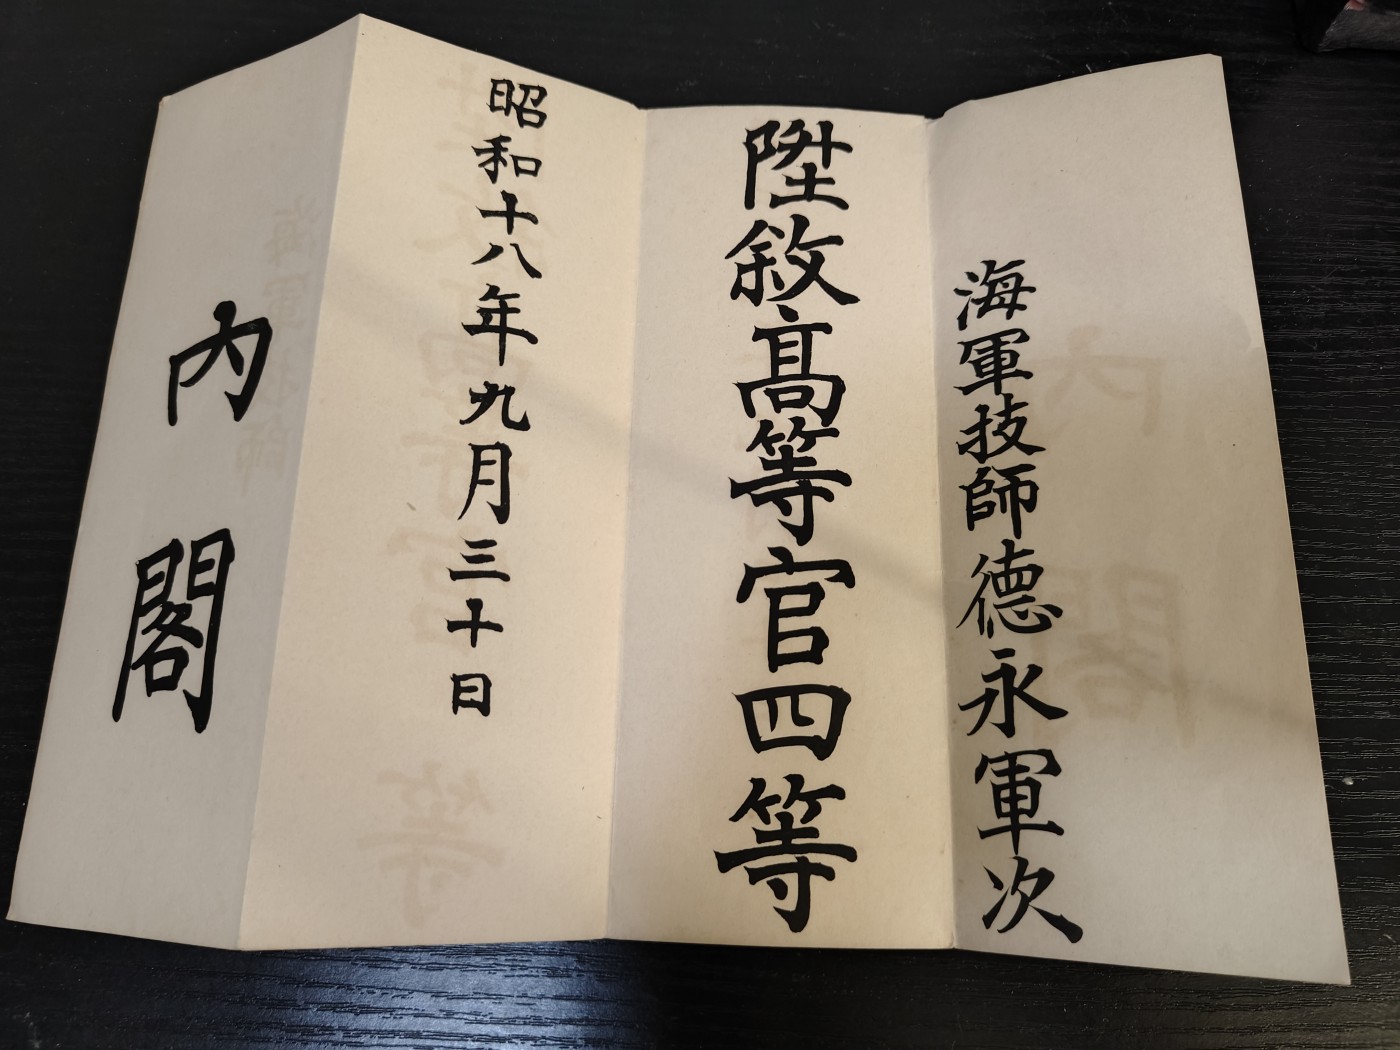 海軍技師德永軍次
陞敘高等官四等
昭和十八年九月三十日
內閣